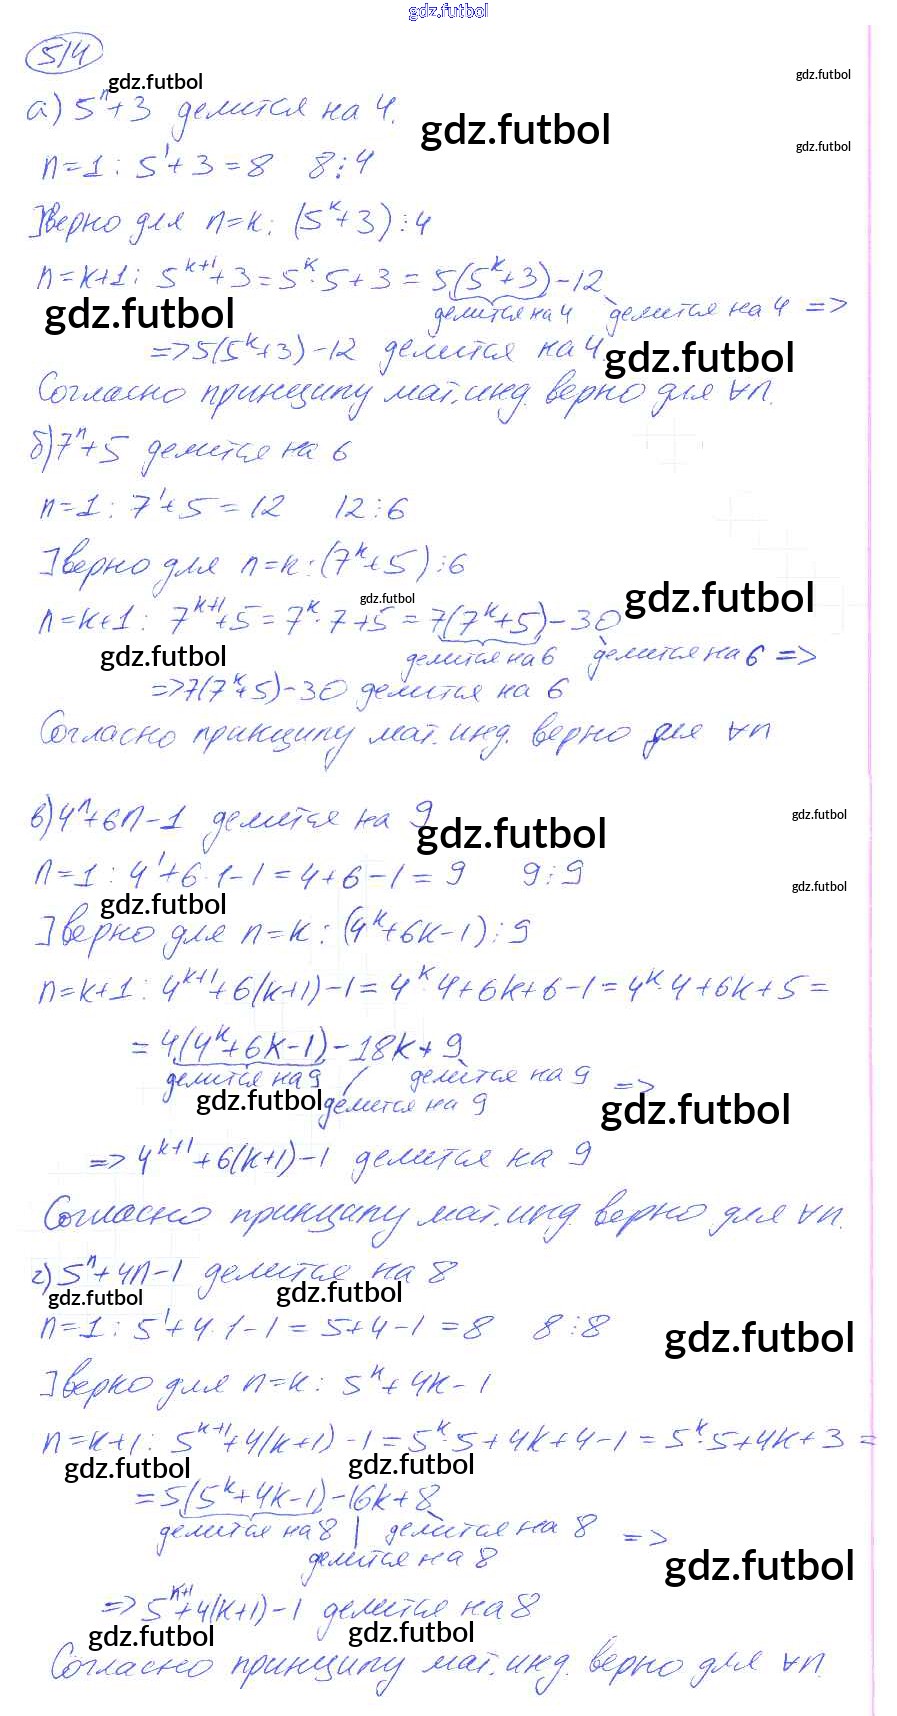 gdz.futbol
514
gdz.futbol
gdz.futbol
а) 5ⁿ+3 делится на 4.
gdz.futbol
gdz.futbol
n=1: 5¹+3=8   8⋮4
]верно для n=k: (5ᵏ+3)⋮4
n=k+1: 5ᵏ⁺¹+3=5ᵏ·5+3=5(5ᵏ+3)-12
делится на 4   делится на 4 =>
gdz.futbol
=>5(5ᵏ+3)-12 делится на 4.
gdz.futbol
Согласно принципу мат.инд. верно для ∀n.
б)7ⁿ+5 делится на 6
n=1: 7¹+5=12   12⋮6
]верно для n=k:(7ᵏ+5)⋮6
gdz.futbol
gdz.futbol
n=k+1: 7ᵏ⁺¹+5=7ᵏ·7+5=7(7ᵏ+5)-30
gdz.futbol
делится на 6   делится на 6 =>
=>7(7ᵏ+5)-30 делится на 6
Согласно принципу мат.инд. верно для ∀n
в)4ⁿ+6n-1 делится на 9
gdz.futbol
gdz.futbol
n=1: 4¹+6·1-1=4+6-1=9   9⋮9
gdz.futbol
gdz.futbol
]верно для n=k: (4ᵏ+6k-1)⋮9
n=k+1: 4ᵏ⁺¹+6(k+1)-1=4ᵏ·4+6k+6-1=4ᵏ·4+6k+5=
=4(4ᵏ+6k-1)-18k+9
делится на 9   делится на 9 =>
gdz.futbol
делится на 9
gdz.futbol
=>4ᵏ⁺¹+6(k+1)-1 делится на 9
Согласно принципу мат.инд. верно для ∀n.
г)5ⁿ+4n-1 делится на 8
gdz.futbol
gdz.futbol
n=1: 5¹+4·1-1=5+4-1=8   8⋮8
gdz.futbol
]верно для n=k: 5ᵏ+4k-1
n=k+1: 5ᵏ⁺¹+4(k+1)-1=5ᵏ·5+4k+4-1=5ᵏ·5+4k+3=
gdz.futbol
gdz.futbol
=5(5ᵏ+4k-1)-16k+8
делится на 8   делится на 8 =>
делится на 8
gdz.futbol
=>5ᵏ⁺¹+4(k+1)-1 делится на 8
gdz.futbol
gdz.futbol
Согласно принципу мат.инд. верно для ∀n.